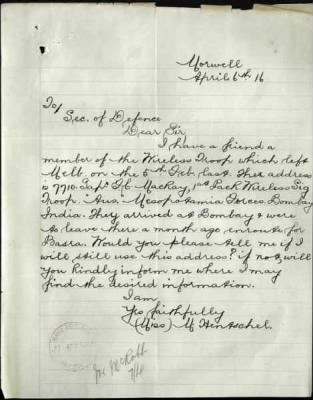 Morwell
April 6th 16
To/
Sec. of Defence
Dear Sir
I have a friend a
member of the Wireless Troop which left
Melb. on the 5th Feb. last. Their address
is 7710. Sapr MacKay, 1st Pack Wireless Sig
Troop. "Aus." Mesopotamia Forces. Bombay
India. They arrived at Bombay & were
to leave there a month ago enroute for
Basra. Would you please tell me if I
will still use this address? if not, will
you kindly inform me where I may
find the desired information.
I am
Yrs faithfully
(Miss) M Hentschel.